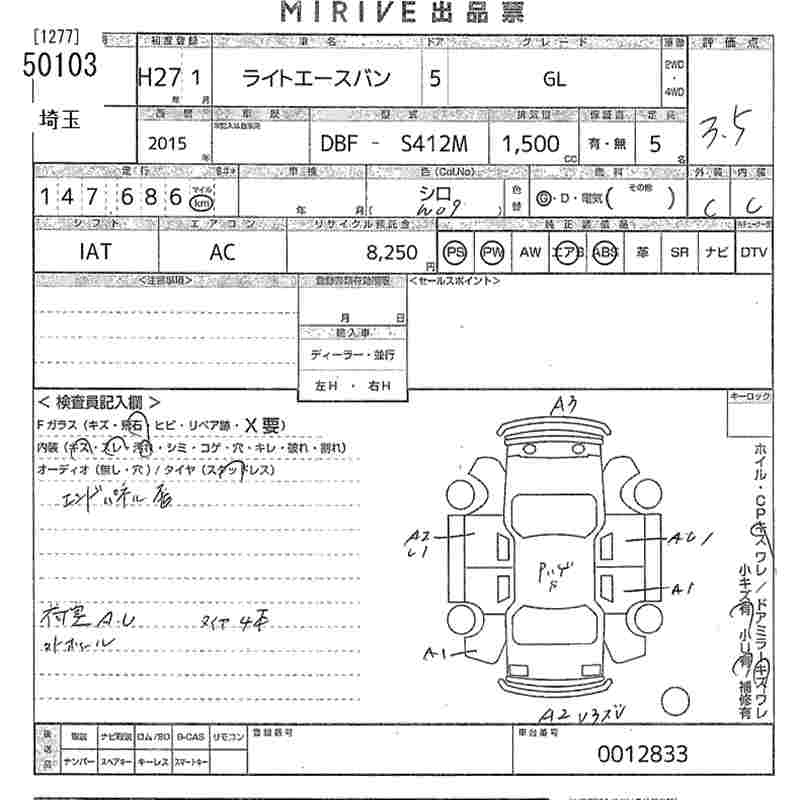 MIRIVE 出品票
[1277]
50103
埼玉
初度登録 車名 ドア グレード 車歴 評価点
H27 1 ライトエースバン 5 GL 2WD・4WD
年 月
3.5
西暦 車歴 型式 排気量 定員
2015 年 DBF - S412M 1,500 cc 有・無 5 名
走行 車検 色(Col.No) 燃料 外装 内装
147,686 マイル km 年 月 シロ 色替 G・D・電気( その他 )
( W09 ) C C
シフト エアコン リサイクル預託金 純正装備品
IAT AC 8,250 円 PS PW AW エアB ABS 革 SR ナビ DTV
<注意事項> 登録書類有効期限 <セールスポイント>
月 日
輸入車
ディーラー・並行
左H ・ 右H
< 検査員記入欄 >
キーロック
Fガラス(キズ・飛石・ヒビ・リペア跡・X要)
内装(キズ・スレ・汚れ・シミ・コゲ・穴・キレ・破れ・割れ)
オーディオ(無し・穴)/タイヤ(スタッドレス)
エンドパネル
A3
A2
U1
AU1
A1
A1
荷室 A.U
タイヤ 4本
A2
ホイル・CPキズワレ/ドアミラーキズワレ
小キズ有 小U有 補修有
後送品 取説 ナビ取説 ロム/SD B-CAS リモコン 登録番号 車台番号
ナンバー スペアキー キーレス スマートキー
0012833